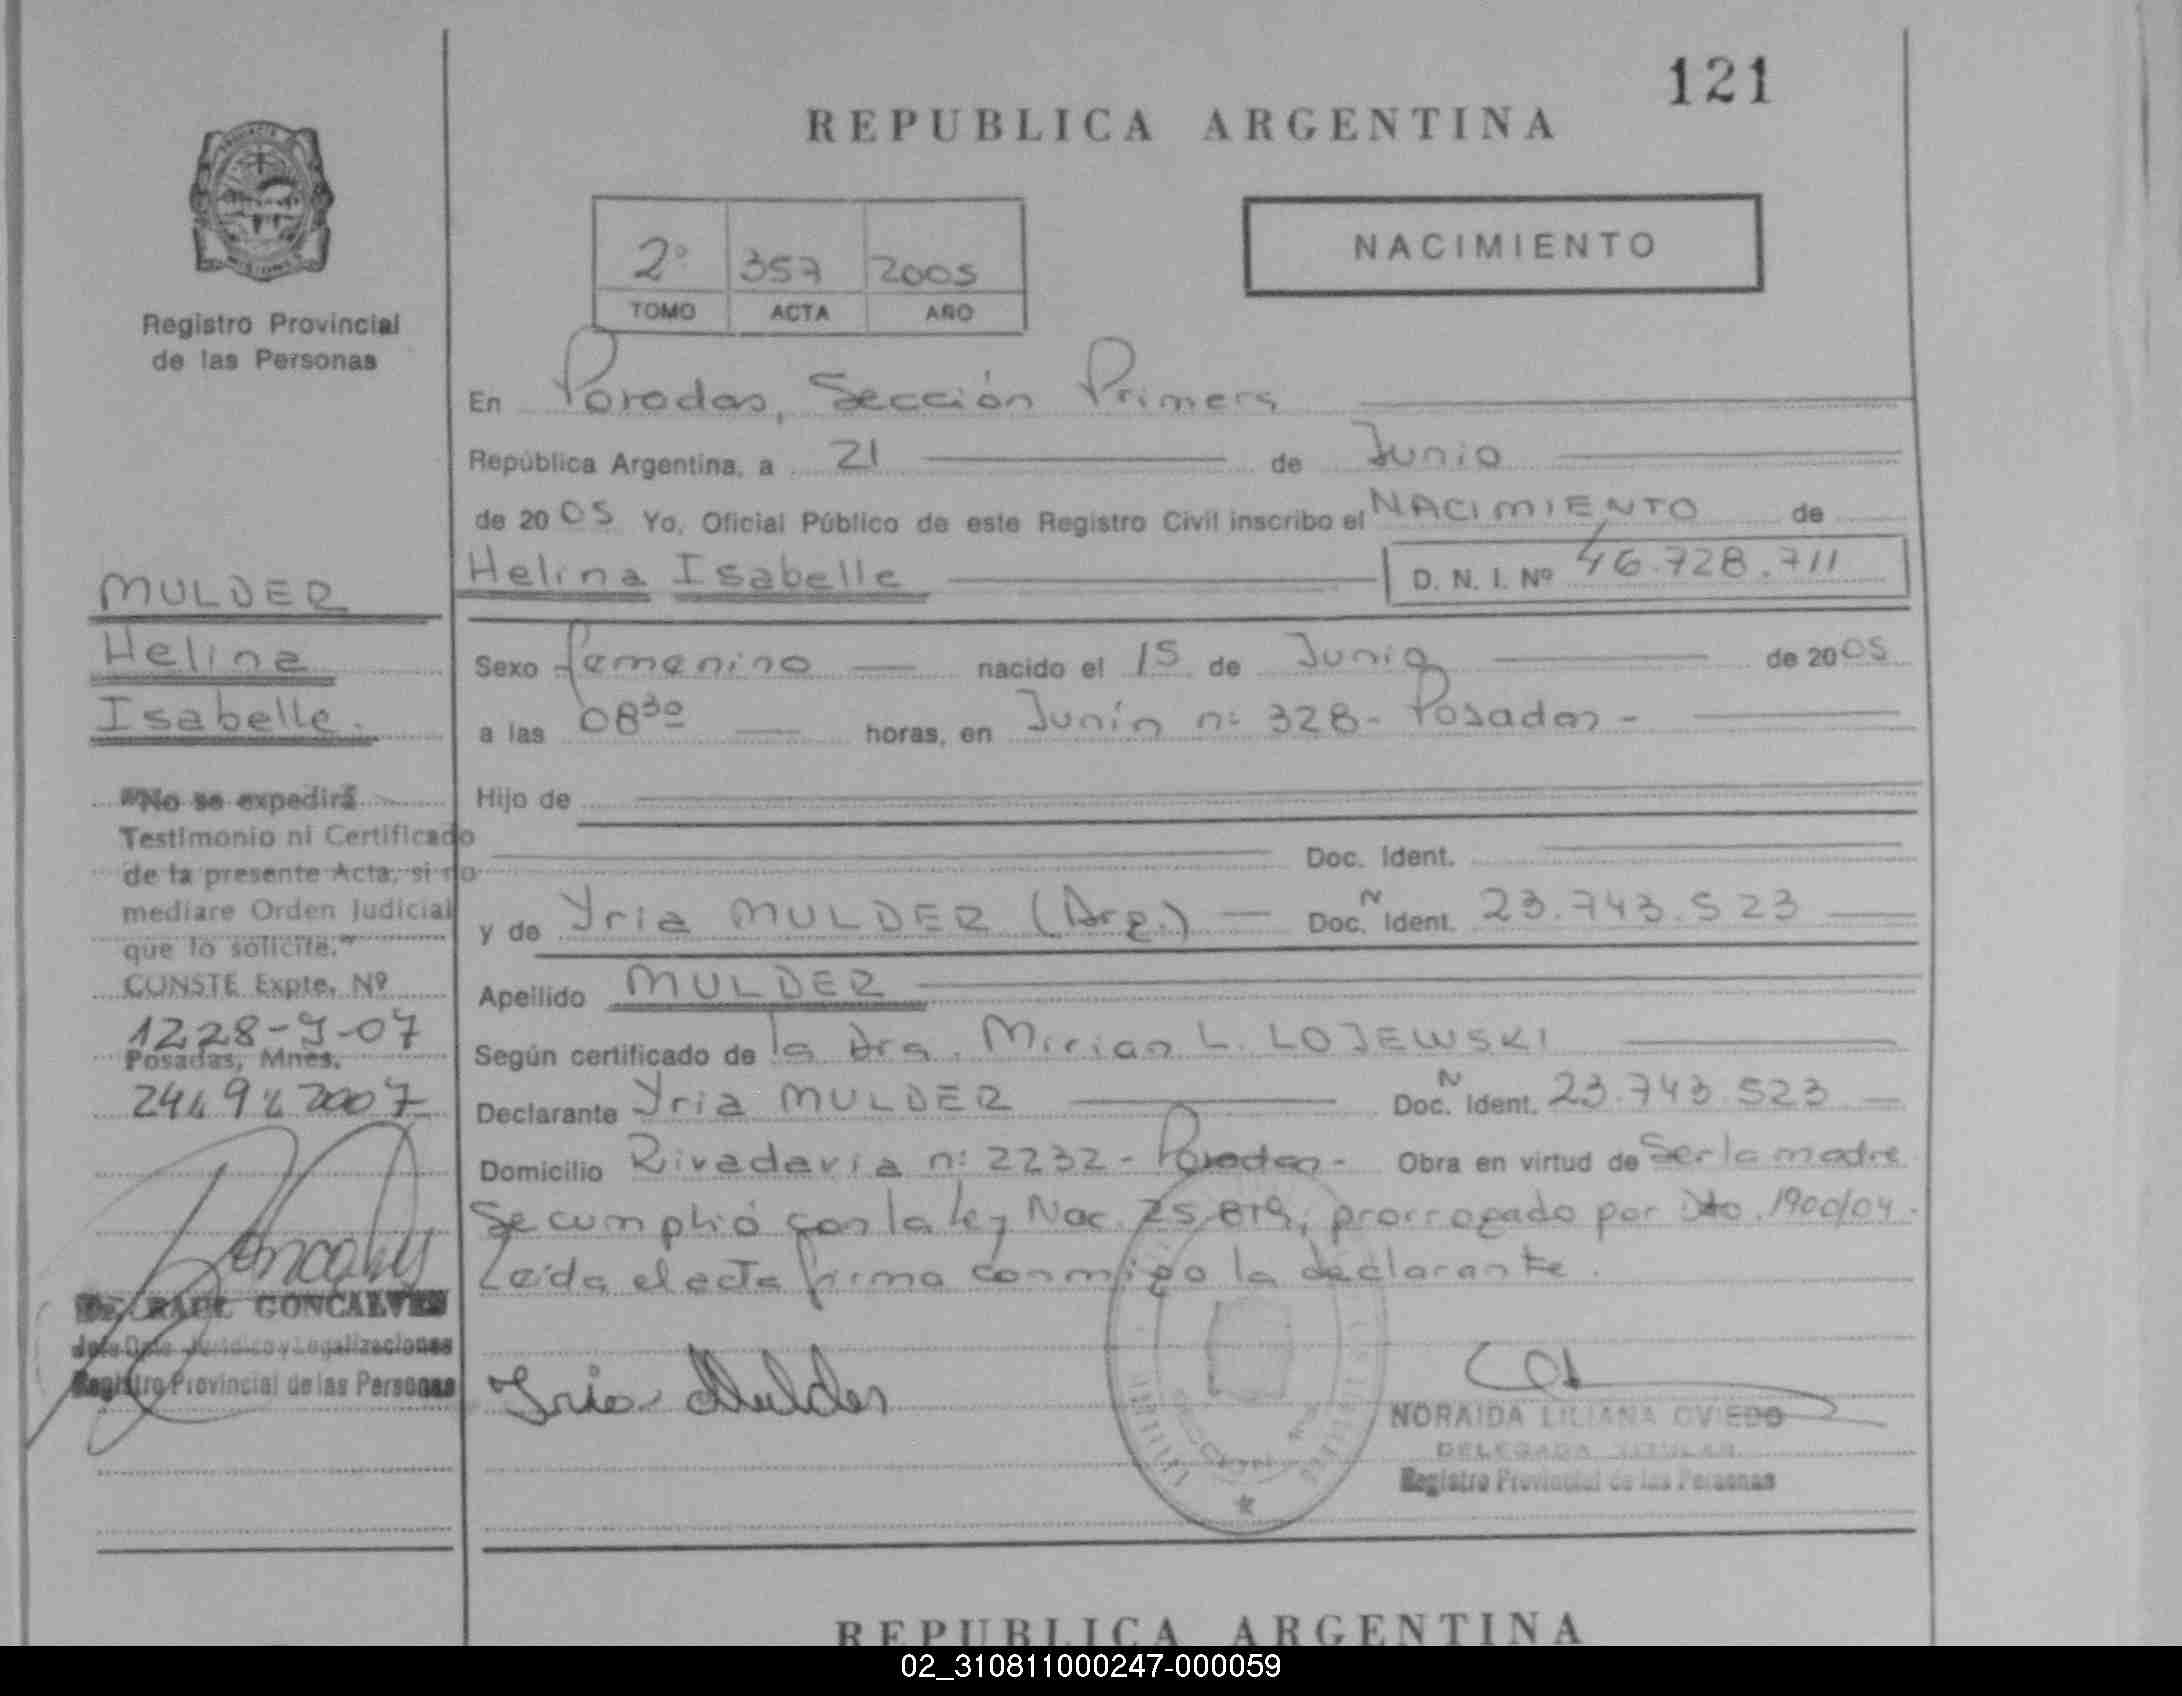 121
REPUBLICA ARGENTINA
NACIMIENTO
2º 357 2005
TOMO ACTA AÑO
Registro Provincial
de las Personas
En Posadas, Sección Primera
República Argentina, a 21 de Junio
de 2005 Yo, Oficial Público de este Registro Civil inscribo el NACIMIENTO de
Helina Isabelle D. N. I. Nº 46.728.711
Sexo femenino nacido el 15 de Junio de 2005
a las 08³⁰ horas, en Junín nº 328- Posadas -
Hijo de
Doc. Ident.
y de Yria MULDER (Arg.) Doc. N Ident. 23.743.523
Apellido MULDER
Según certificado de la Dra. Mirian L. LOJEWSKI
Declarante Yria MULDER Doc. N Ident. 23.743.523
Domicilio Rivadavia nº 2232- Posadas- Obra en virtud de Ser la madre
Se cumplió con la ley Nac. 25.819, prorrogado por Dto. 1900/04.
Leída el acta firma conmigo la declarante.
Yria Mulder
NORAIDA LILIANA OVIEDO
DELEGADA TITULAR
Registro Provincial de las Personas
MULDER
Helina
Isabelle.
"No se expedirá
Testimonio ni Certificado
de la presente Acta, si no
mediare Orden Judicial
que lo solicite."
CONSTE Expte. Nº
1228-J-07
Posadas, Mnes.
24 9 2007
RAUL GONCALVES
Jefe Dpto. Jurídico y Legalizaciones
Registro Provincial de las Personas
REPUBLICA ARGENTINA
02_310811000247-000059